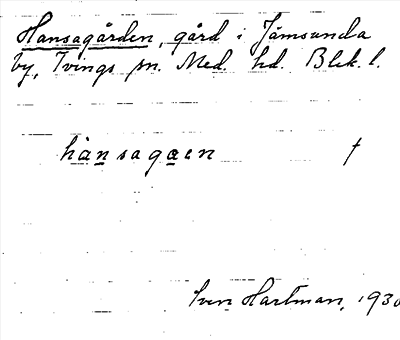 Hansagården, gård i Jämsunda
by, Tvings sn. Med. hd. Blek. l.
hànsagaen †
Sven Hartman, 1930